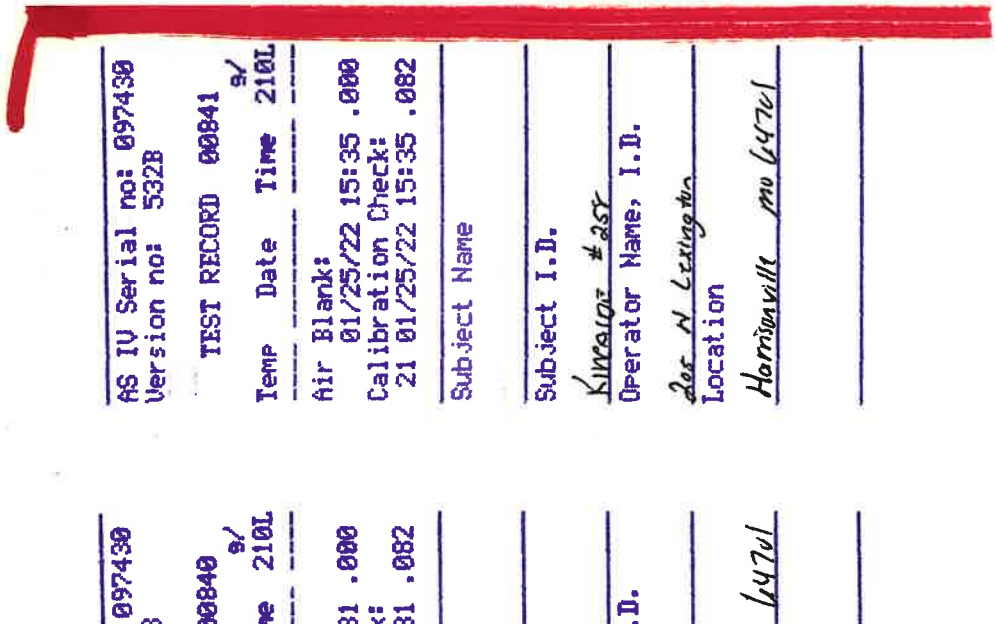 AS IV Serial no: 097430
Version no: 532B
TEST RECORD 00841
g/
Temp Date Time 210L
Air Blank:
01/25/22 15:35 .000
Calibration Check:
21 01/25/22 15:35 .082
Subject Name
Subject I.D.
#258
Operator Name, I.D.
205 N Lexington
Location
Harrisonville mo 64701
097430
00840
g/
me 210L
31 .000
k:
31 .082
.D.
64701